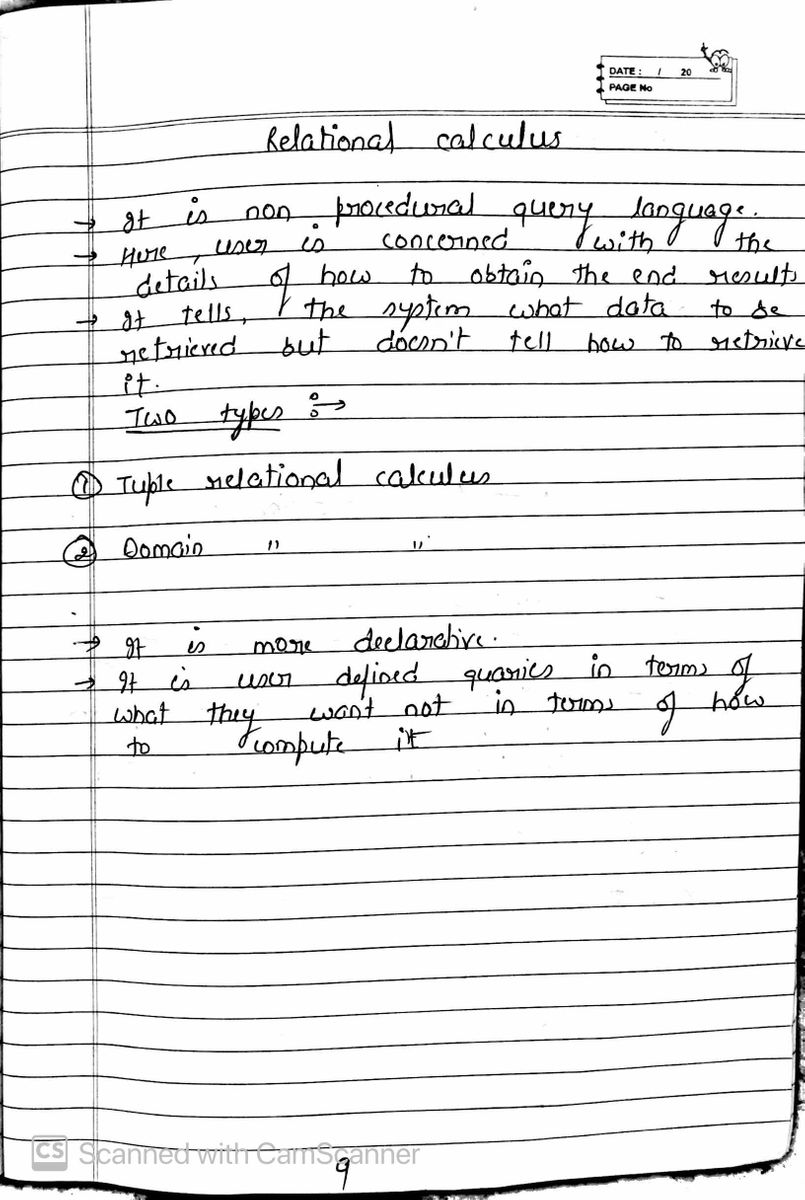 DATE : / 20
PAGE No
Relational calculus
→ It is non procedural query language.
→ Here, user is concerned with the
details of how to obtain the end results
→ It tells, the system what data to be
retrieved but doesn't tell how to retrieve
it.
Two types :→
① Tuple relational calculus
② Domain " "
→ It is more declarative.
→ It is user defined quaries in terms of
what they want not in terms of how
to compute it
CS Scanned with CamScanner
9